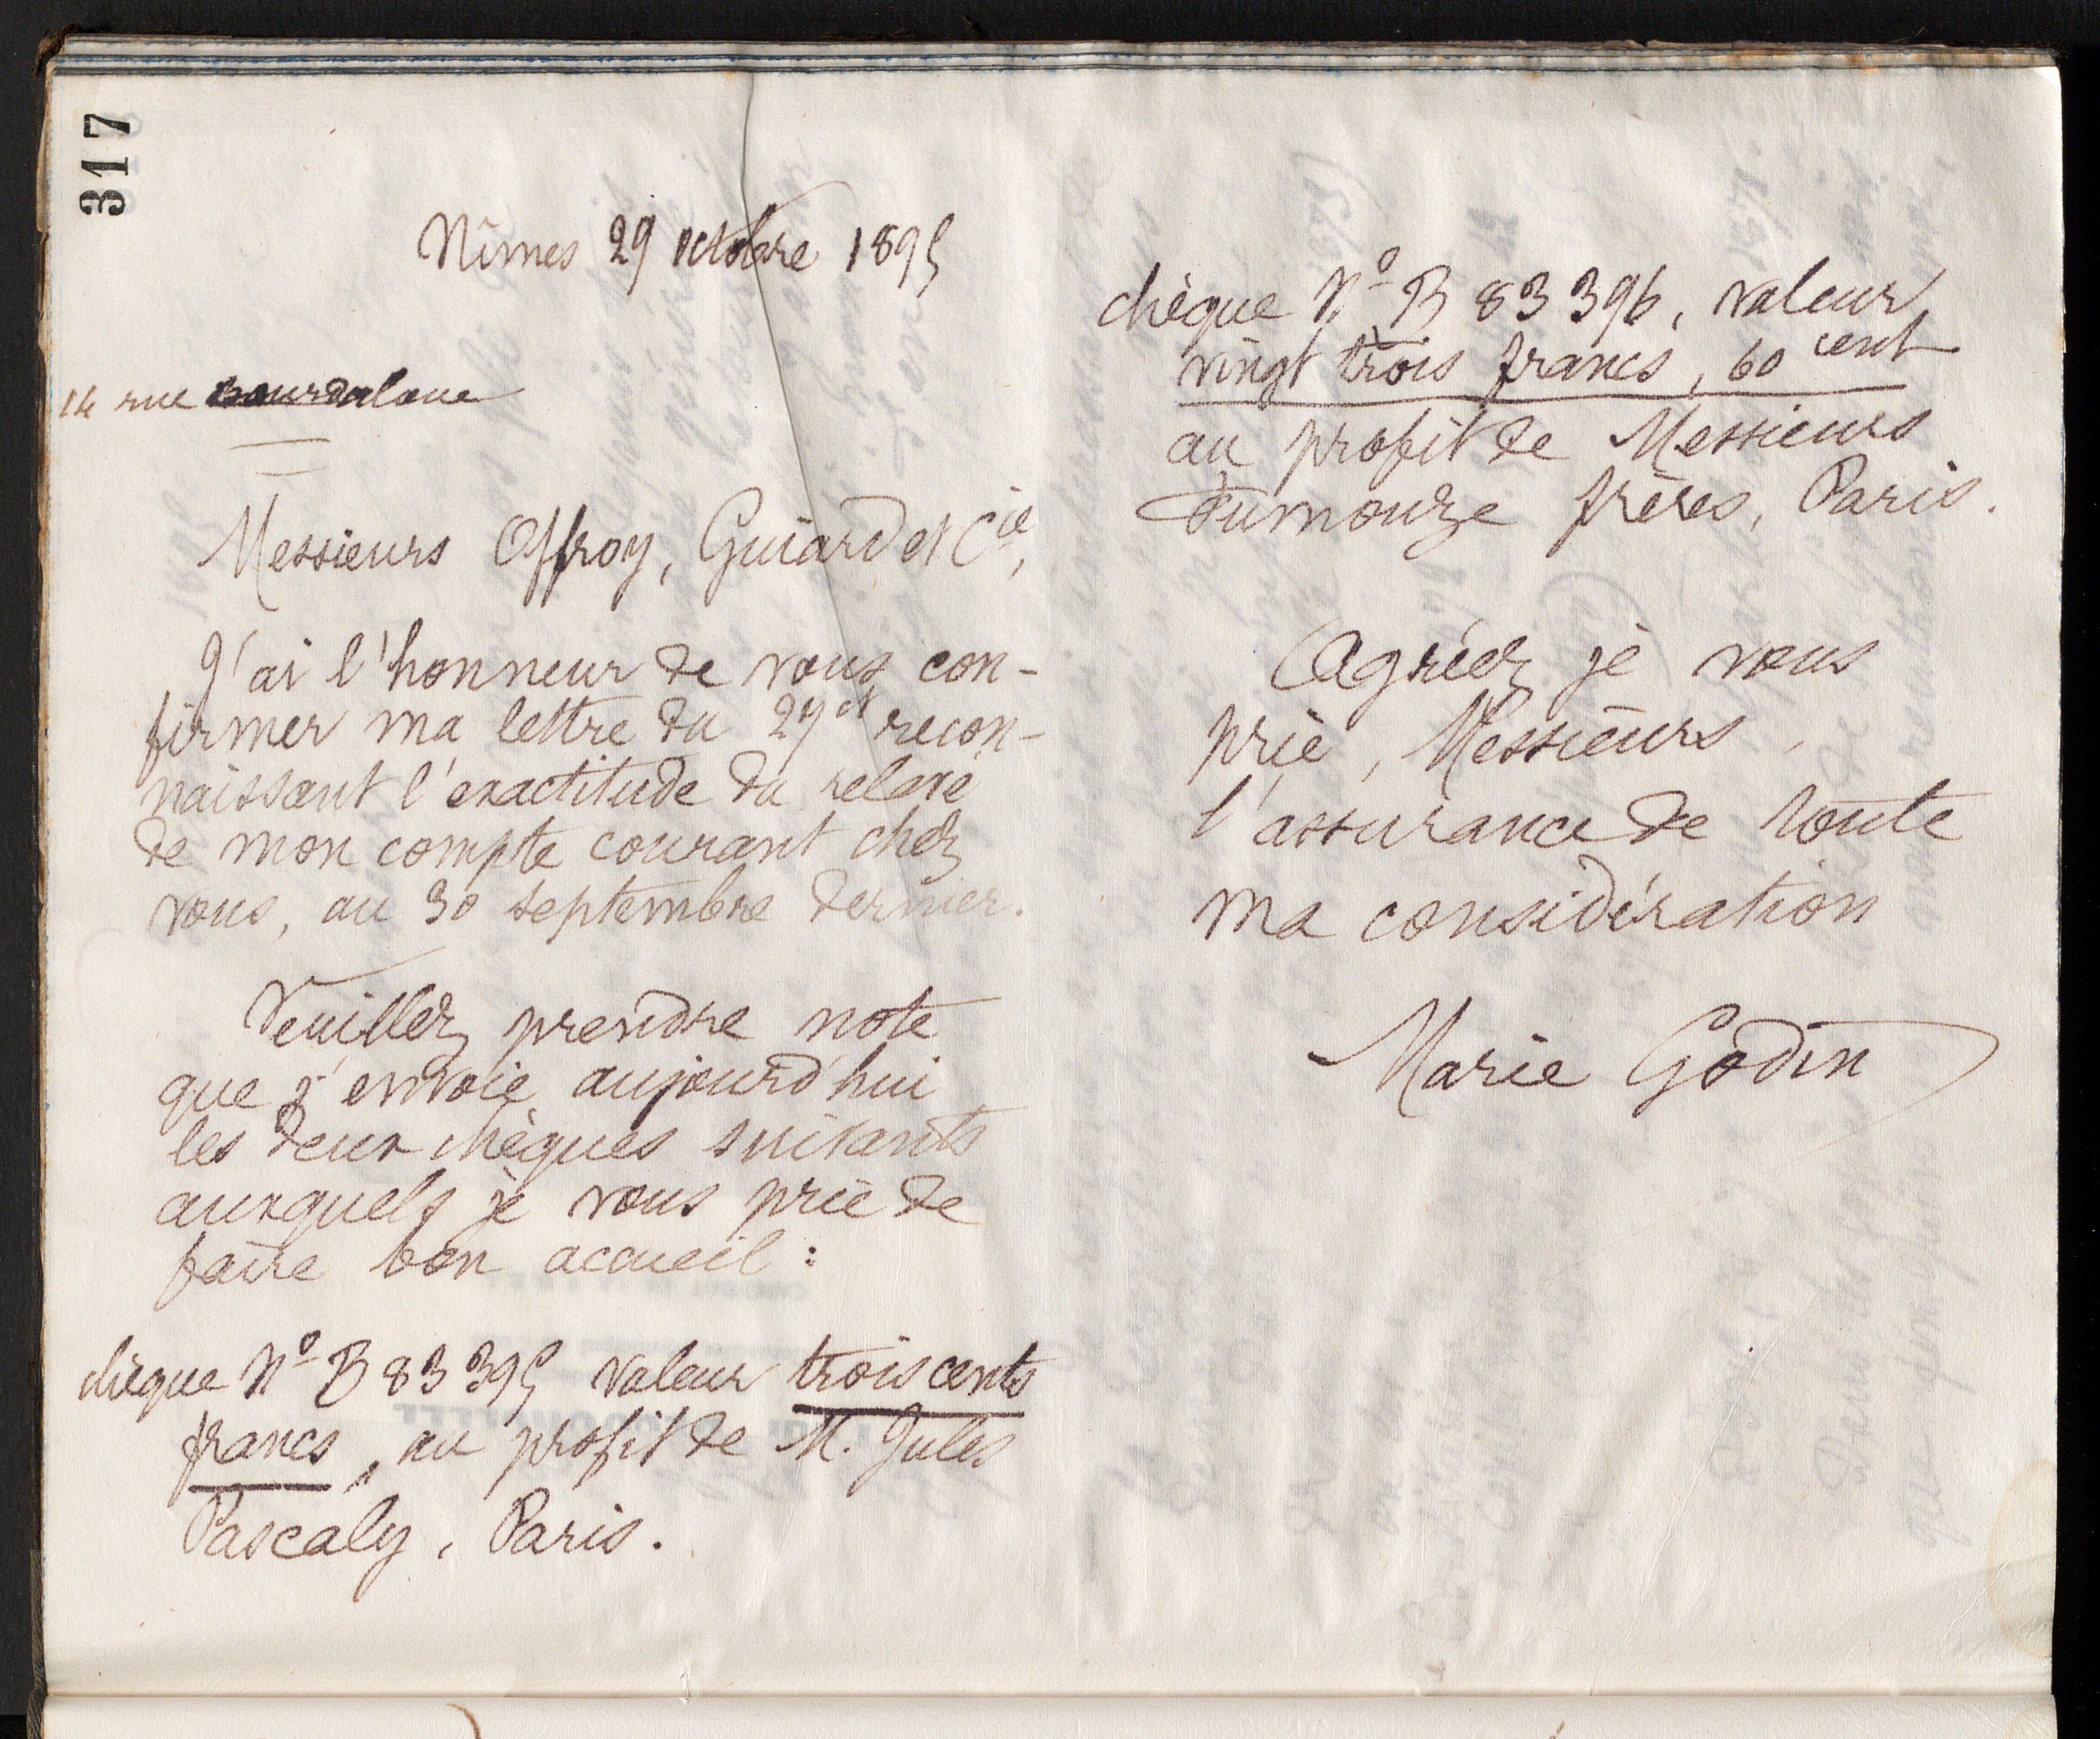 317
Nîmes 29 octobre 1895
14 rue Bourdaloue
Messieurs Offroy, Guiard et Cie,
J'ai l'honneur de vous con-
firmer ma lettre du 27 ct recon-
naissant l'exactitude du relevé
de mon compte courant chez
vous, au 30 septembre dernier.
Veuillez prendre note
que j'envoie aujourd'hui
les deux chèques suivants
auxquels je vous prie de
faire bon accueil :
chèque No B 83 395 valeur trois cents
francs, au profit de M. Jules
Pascaly, Paris.
chèque No B 83 396, valeur
vingt trois francs, 60 cent
au profit de Messieurs
Dumouze frères, Paris.
Agréez je vous
prie, Messieurs,
l'assurance de toute
ma considération
Marie Godin